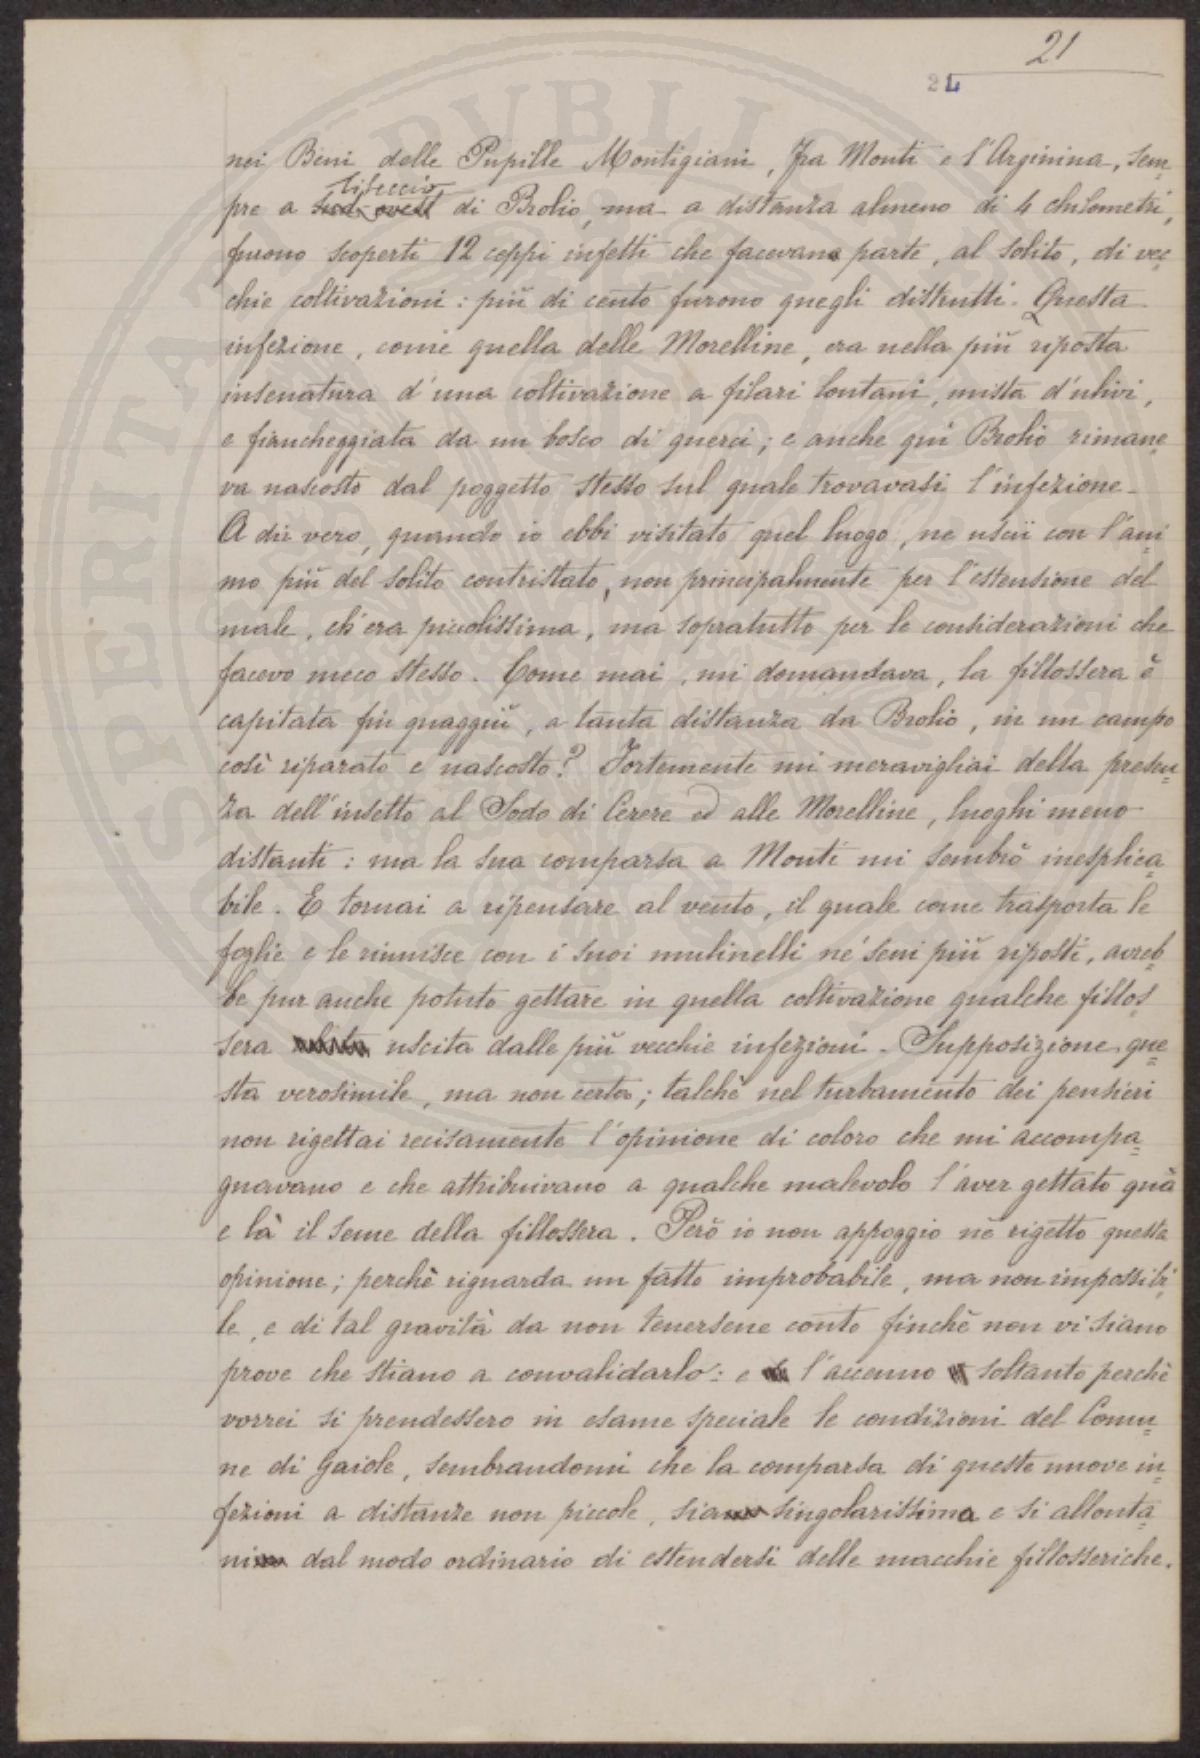 21
2L
nei Beni delle Pupille Montigiani, fra Monti e l'Arginina, sem=
libeccio
pre a sud-ovest di Brolio, ma a distanza almeno di 4 chilometri,
furono scoperti 12 ceppi infetti che facevano parte, al solito, di vec=
chie coltivazioni: più di cento furono quegli distrutti. Questa
infezione, come quella delle Morelline, era nella più riposta
insenatura d'una coltivazione a filari lontani, mista d'ulivi,
e fiancheggiata da un bosco di querci; e anche quì Brolio rimane=
va nascosto dal poggetto stesso sul quale trovavasi l'infezione.
A dir vero, quando io ebbi visitato quel luogo, ne uscii con l'ani=
mo più del solito contristato, non principalmente per l'estensione del
male, ch'era piccolissima, ma sopratutto per le considerazioni che
facevo meco stesso. Come mai, mi domandava, la fillossera è
capitata fin quaggiù, a tanta distanza da Brolio, in un campo
così riparato e nascosto? Fortemente mi meravigliai della presen=
za dell'insetto al Sodo di Cerere ed alle Morelline, luoghi meno
distanti: ma la sua comparsa a Monti mi sembrò inesplica=
bile. E tornai a ripensare al vento, il quale come trasporta le
foglie e le riunisce con i suoi mulinelli ne' seni più riposti, avreb=
be pur anche potuto gettare in quella coltivazione qualche fillos=
sera uscita dalle più vecchie infezioni. Supposizione que=
sta verosimile, ma non certa; talchè nel turbamento dei pensieri
non rigettai recisamente l'opinione di coloro che mi accompa=
gnavano e che attribuivano a qualche malevolo l'aver gettato quà
e là il seme della fillossera. Però io non appoggio nè rigetto questa
opinione; perchè riguarda un fatto improbabile, ma non impossibi=
le, e di tal gravità da non tenersene conto finchè non vi siano
prove che stiano a convalidarlo: e l'accenno soltanto perchè
vorrei si prendessero in esame speciale le condizioni del Comu=
ne di Gaiole, sembrandomi che la comparsa di queste nuove in=
fezioni a distanze non piccole, sia singolarissima e si allonta=
ni dal modo ordinario di estendersi delle macchie fillosseriche.